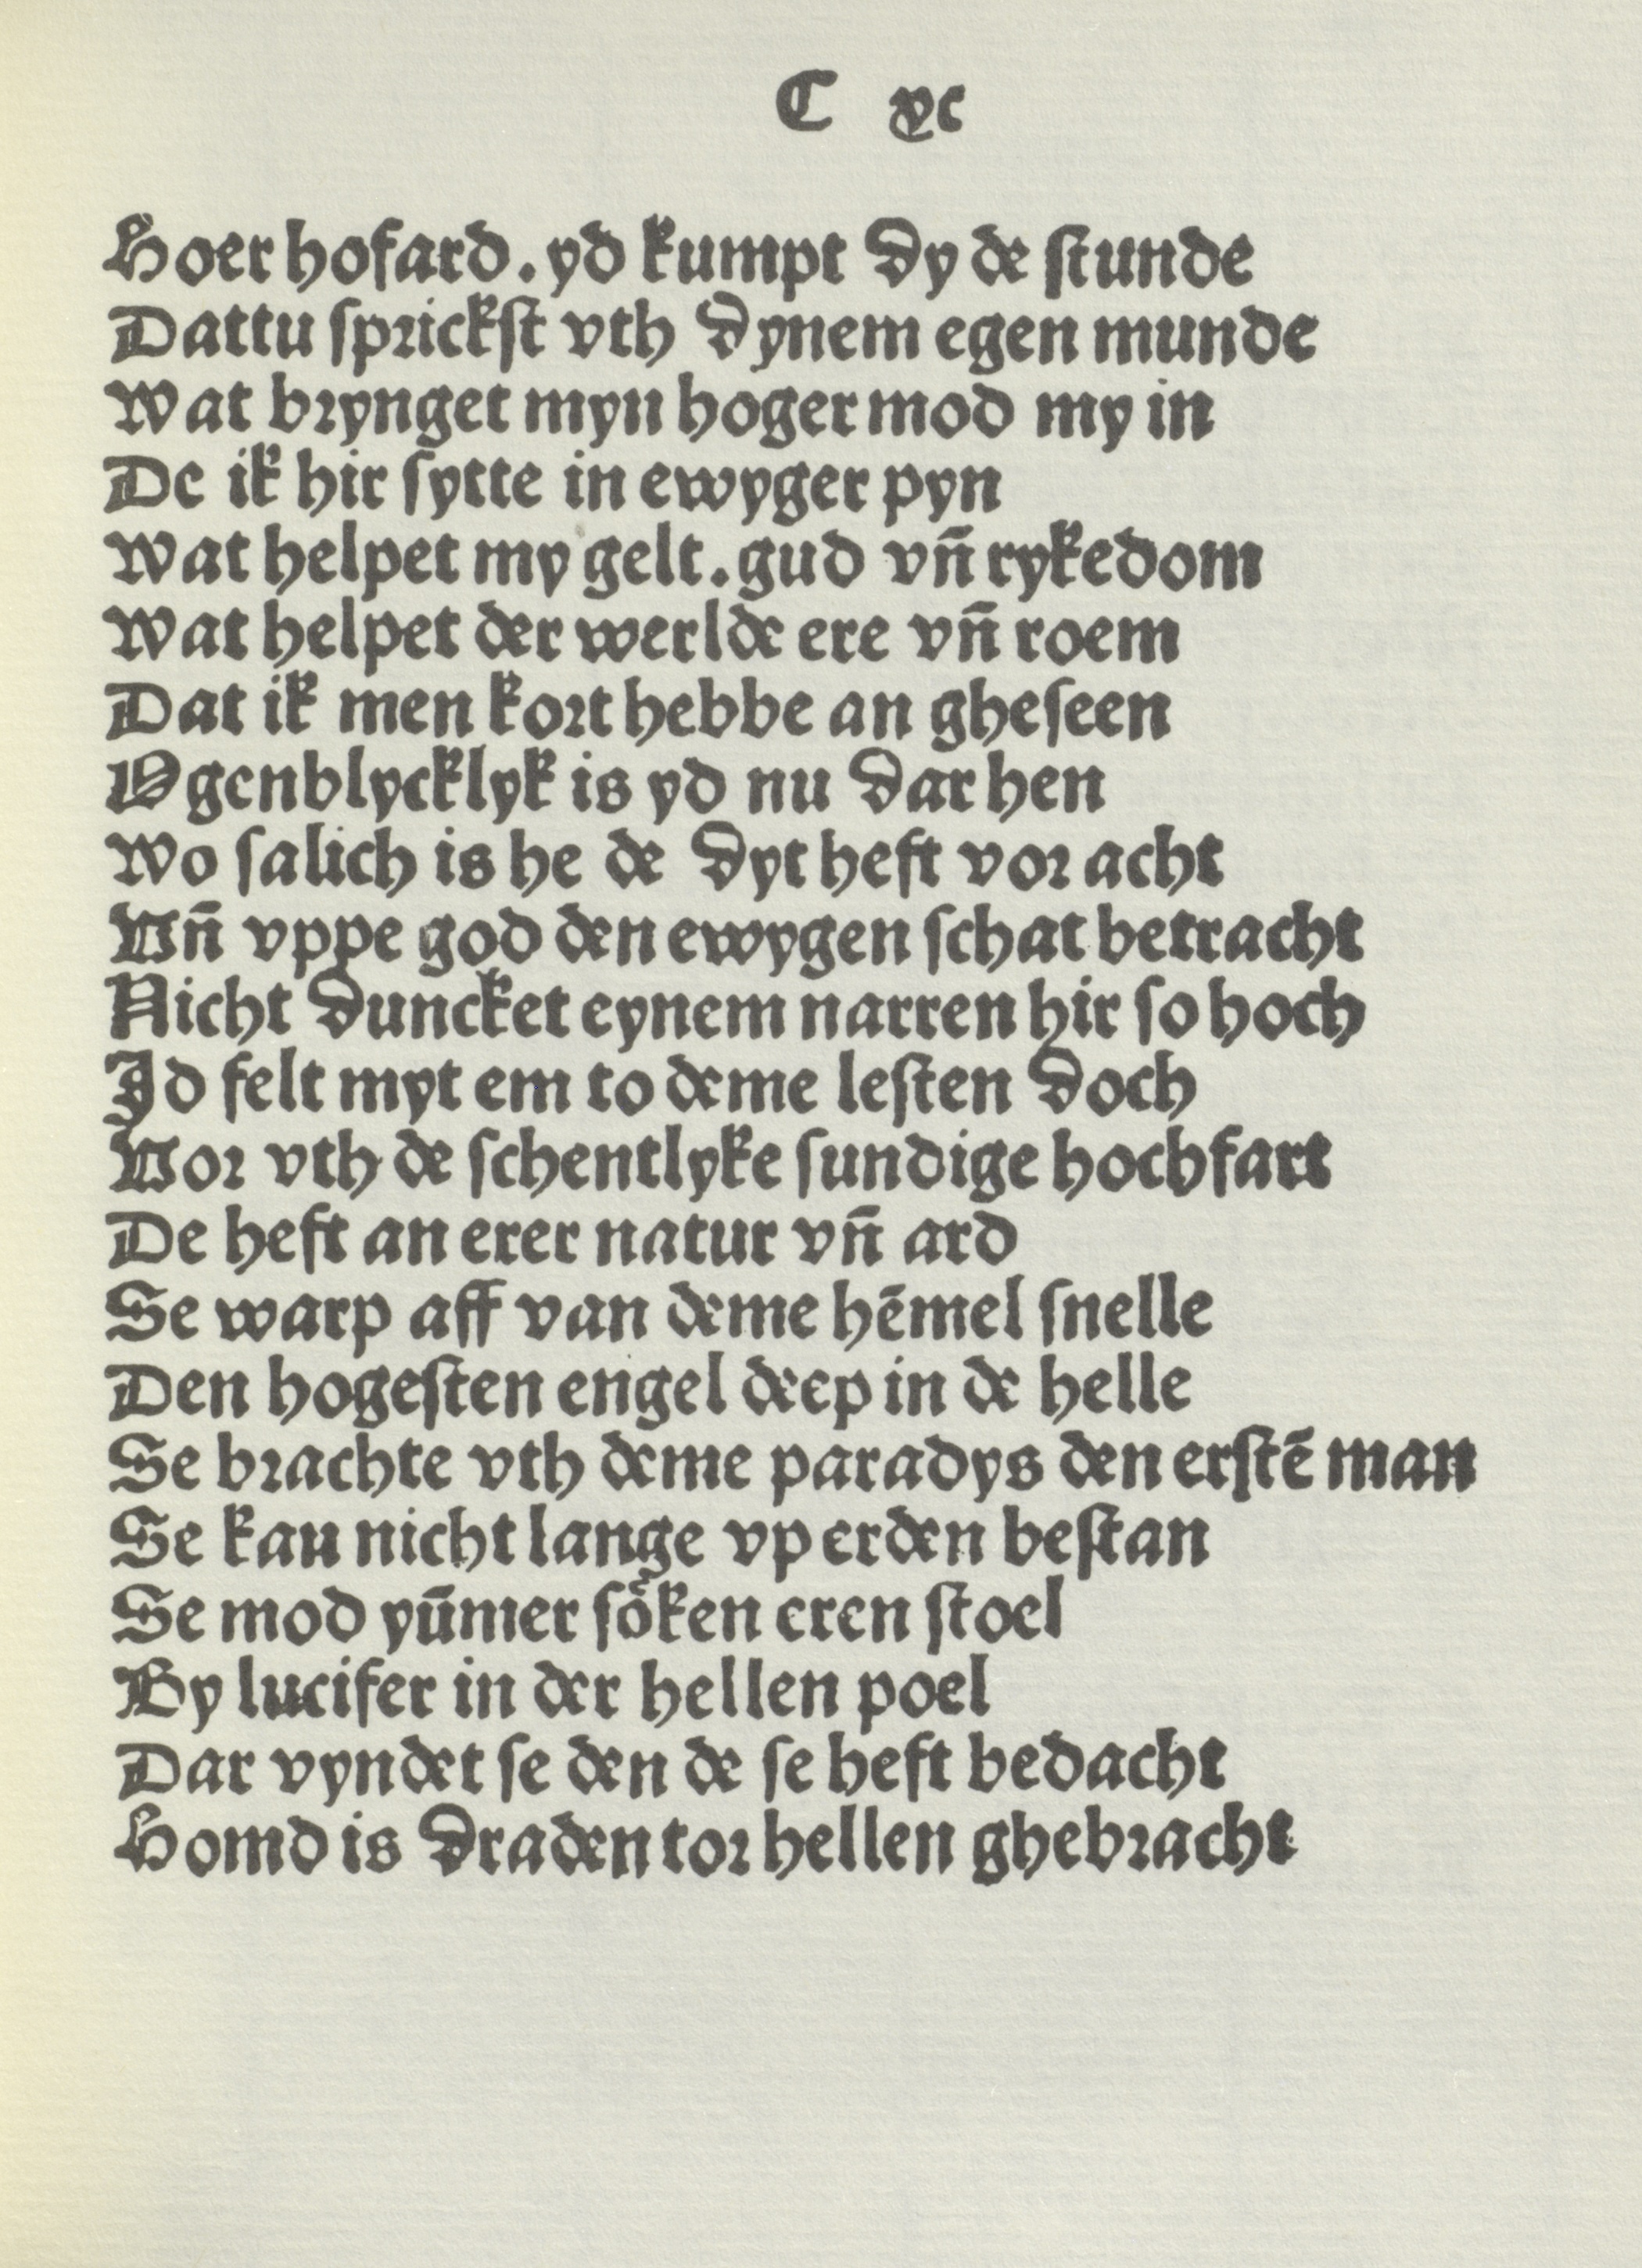 C xc
Hoer hofard. yd kumpt dy de ſtunde
Dattu ſprickſt vth dynem egen munde
Wat brynget myn hoger mod my in
De ik hir ſytte in ewyger pyn
Wat helpet my gelt. gud vñ rykedom
Wat helpet der werlde ere vñ roem
Dat ik men kort hebbe an gheſeen
Ogenblycklyk is yd nu dar hen
Wo ſalich is he de dyt heft vor acht
Vñ vppe god den ewygen ſchat betracht
Nicht duncket eynem narren hir ſo hoch
Id felt myt em to deme leſten doch
Vor vth de ſchentlyke ſundige hochfart
De heft an erer natur vñ ard
Se warp aff van deme hēmel ſnelle
Den hogeſten engel deep in de helle
Se brachte vth deme paradys den erſtē man
Se kan nicht lange vp erden beſtan
Se mod yūmer ſöken eren ſtoel
By lucifer in der hellen poel
Dar vyndet ſe den de ſe heft bedacht
Homd is draden tor hellen ghebracht